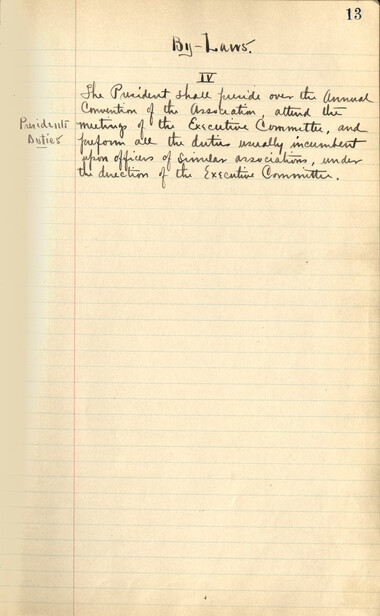 13
By-Laws.
IV
The President shall preside over the Annual
Convention of the Association, attend the
meetings of the Executive Committee, and
perform all the duties usually incumbent
upon officers of similar associations, under
the direction of the Executive Committee.
Presidents
Duties